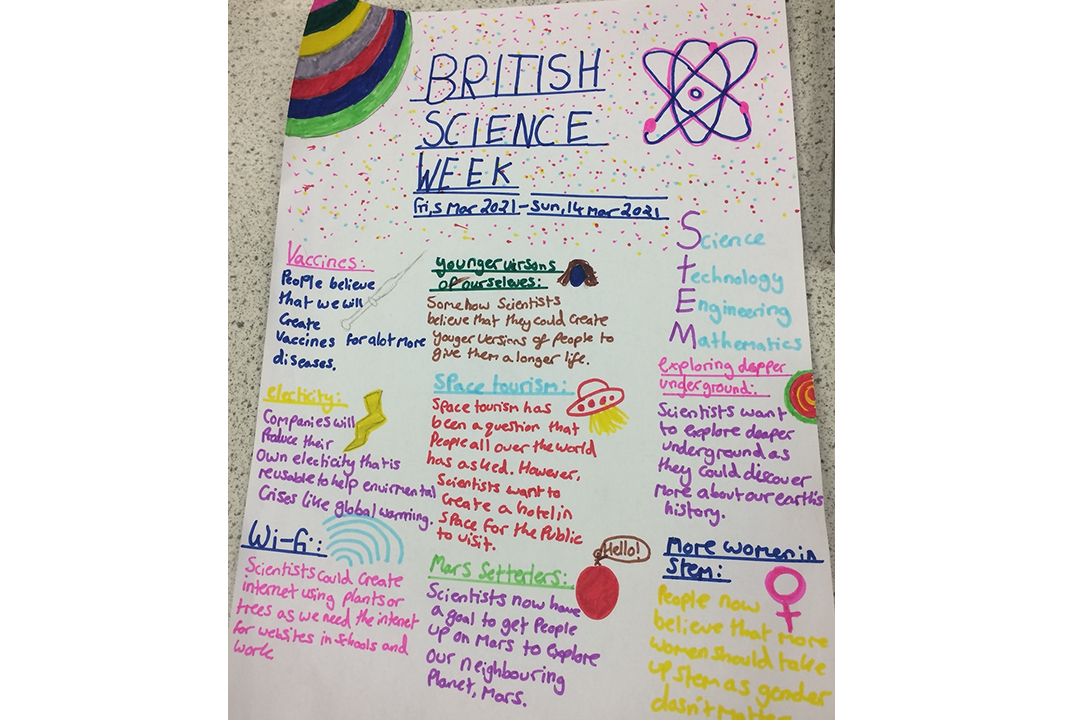 BRITISH
SCIENCE
WEEK
Fri,5 Mar 2021-Sun,14 Mar 2021
Science
technology
Engineering
Mathematics
Vaccines:
People believe
that we will
create
vaccines for alot more
diseases.
younger versons
of ourseleves:
Somehow Scientists
believe that they could create
youger versions of people to
give them a longer life.
exploring depper
underground:
Scientists want
to explore deaper
underground as
they could discover
more about our earth's
history.
electicity:
Companies will
Produce their
own electicity that is
reusable to help envirmental
Crises like global warming.
Space tourism:
Space tourism has
been a question that
People all over the world
has asked. However,
Scientists want to
create a hotel in
space for the Public
to visit.
Wi-fi:
Scientists could create
internet using plants or
trees as we need the intenet
for websites in schools and
work
Hello!
Mars Setterlers:
Scientists now have
a goal to get People
up on Mars to explore
our neighbouring
Planet, Mars.
More women in
Stem:
People now
believe that more
women should take
up stem as gender
dasn't matter